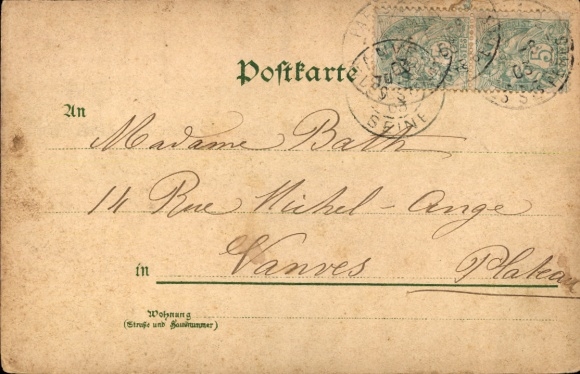 Postkarte
VANVES
SEINE
03
5
An
Madame Bath
14 Rue Michel-Ange
in Vanves Plateau
Wohnung
(Straße und Hausnummer)